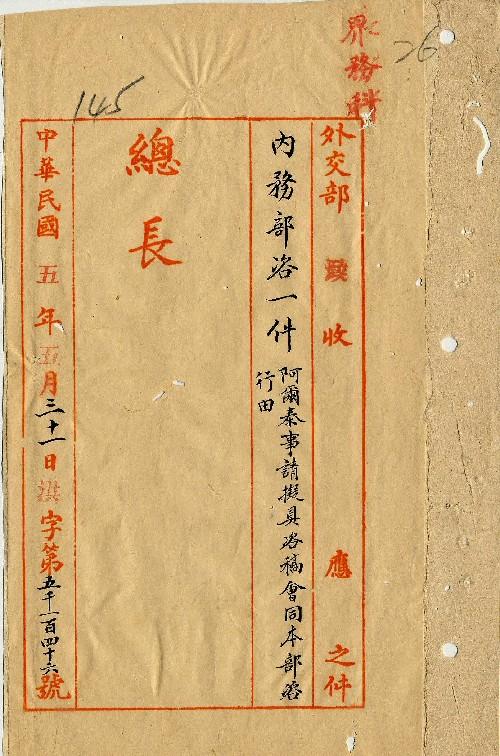 界務科
26
145
外交部收 應 之件
內務部咨一件 阿爾泰事請擬具咨稿會同本部咨
行由
總長
中華民國五年五月三十一日洪字第五千一百四十六號